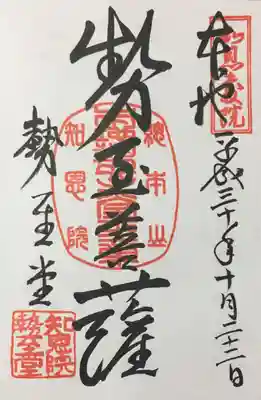 本地
平成三十年十月二十二日
勢至菩薩
総本山
知恩院
勢至堂
知恩院
勢至堂